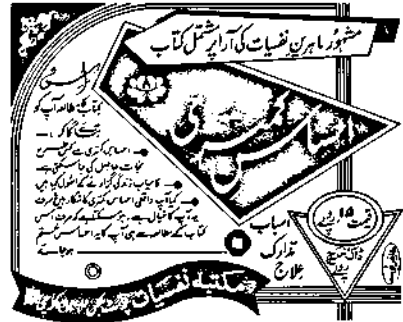 مشہور ماہرین نفسیات کی آرا پر مشتمل کتاب
احساس کمتری
اس
کتاب کا مطالعہ آپ کو
بتائے گا کہ ۔۔۔
احساس کمتری سے کس طرح
نجات حاصل کی جا سکتی ہے
کامیاب زندگی گزارنے کے اصول کیا ہیں
کیا آپ واقعی احساس کمتری کا شکار ہیں یا صرف
یہ آپ کا خیال ہے
کتاب کے مطالعہ سے ہی آپ کا یہ احساس ختم
ہو جائے
اسباب
تدارک
علاج
قیمت ۱۵ روپے
ڈاک خرچ
روپے
مکتبہ نفسیات پوسٹ بکس کراچی